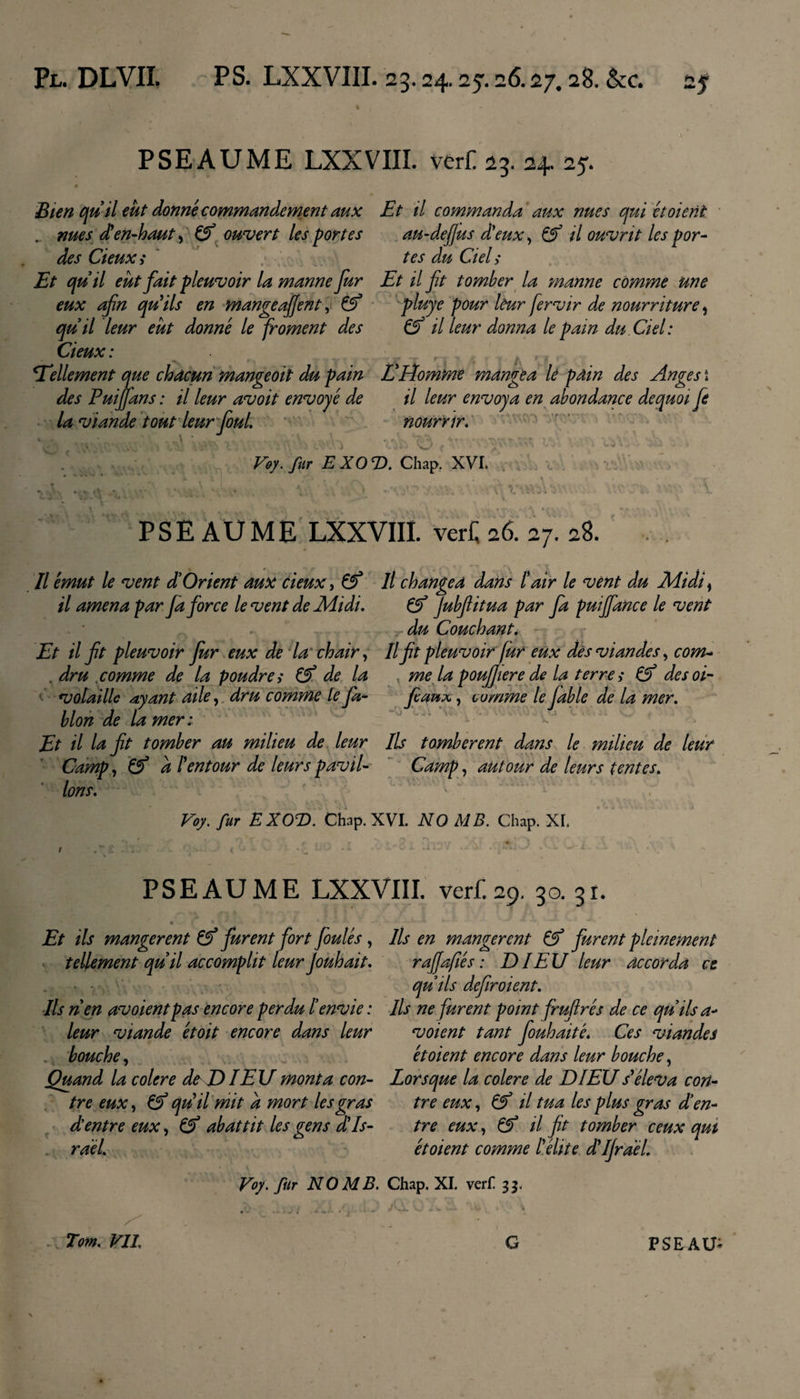 PL. DLVII. PS. LXXVIII. 23. 24. 25. 26. 27. 28. &c. 25
PSEAUME LXXVIII. verſ. 23. 24. 25.
Bien qu'il eût donné commandement aux
nues d'en-haut, & ouvert les portes
des Cieux;
Et qu'il eût fait pleuvoir la manne ſur
eux afin qu'ils en mangeaſſent, &
qu'il leur eût donné le froment des
Cieux:
Tellement que chacun mangeoit du pain
des Puiſſans: il leur avoit envoyé de
la viande tout leur ſoul.
Et il commanda aux nues qui étoient
au-deſſus d'eux, & il ouvrit les por-
tes du Ciel;
Et il fit tomber la manne comme une
pluye pour leur ſervir de nourriture,
& il leur donna le pain du Ciel:
L'Homme mangea le pain des Anges:
il leur envoya en abondance dequoi ſe
nourrir.
Voy. ſur EXOD. Chap. XVI.
PSEAUME LXXVIII. verſ. 26. 27. 28.
Il émut le vent d'Orient aux cieux, &
il amena par ſa force le vent de Midi.
Et il fit pleuvoir ſur eux de la chair,
dru comme de la poudre; & de la
volaille ayant aile, dru comme le ſa-
blon de la mer:
Et il la fit tomber au milieu de leur
Camp, & à l'entour de leurs pavil-
lons.
Il changea dans l'air le vent du Midi,
& ſubſtitua par ſa puiſſance le vent
du Couchant.
Il fit pleuvoir ſur eux des viandes, com-
me la pouſſiere de la terre; & des oi-
ſeaux, comme le ſable de la mer.
Ils tomberent dans le milieu de leur
Camp, autour de leurs tentes.
Voy. ſur EXOD. Chap. XVI. NOMB. Chap. XI.
PSEAUME LXXVIII. verſ. 29. 30. 31.
Et ils mangerent & furent fort ſoulés,
tellement qu'il accomplit leur ſouhait.
Ils n'en avoient pas encore perdu l'envie:
leur viande étoit encore dans leur
bouche,
Quand la colere de DIEU monta con-
tre eux, & qu'il mit à mort les gras
d'entre eux, & abattit les gens d'Iſ-
raël.
Ils en mangerent & furent pleinement
raſſaſiés: DIEU leur accorda ce
qu'ils deſiroient.
Ils ne furent point fruſtrés de ce qu'ils a-
voient tant ſouhaité. Ces viandes
étoient encore dans leur bouche,
Lorsque la colere de DIEU s'éleva con-
tre eux, & il tua les plus gras d'en-
tre eux, & il fit tomber ceux qui
étoient comme l'élite d'Iſraël.
Voy. ſur NOMB. Chap. XI. verſ. 33.
Tom. VII. G PSEAU-